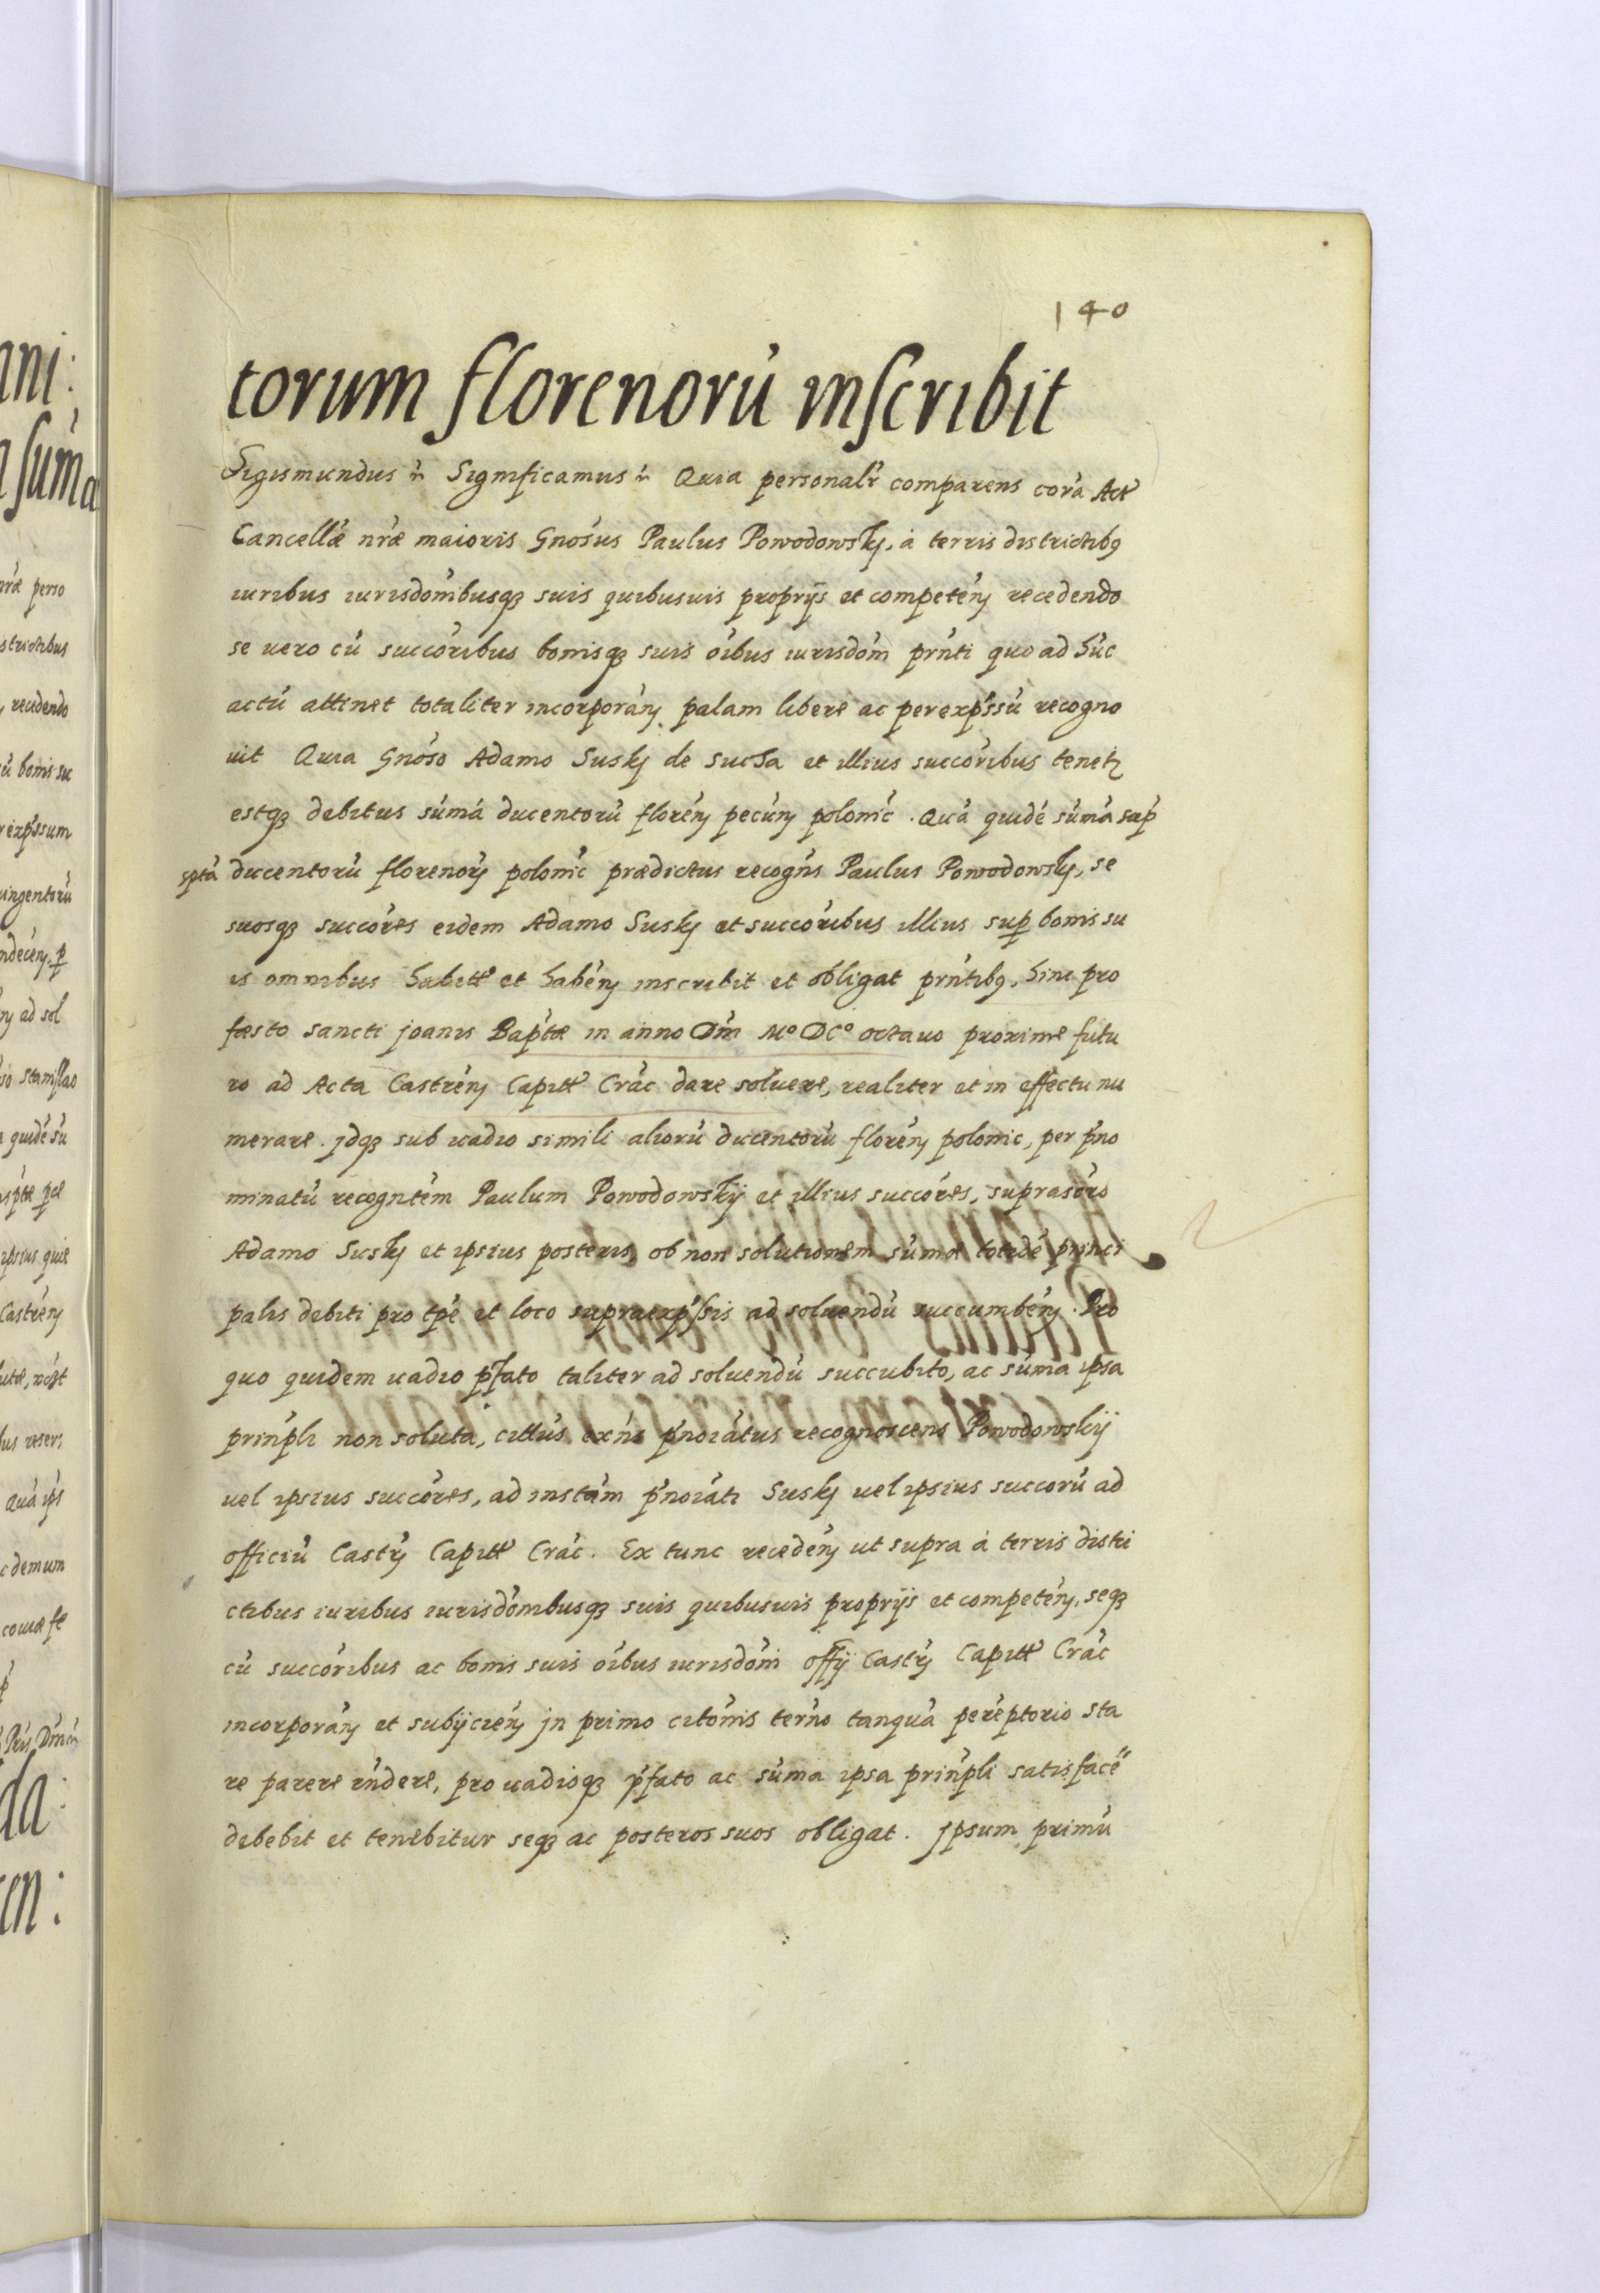 140
torum florenorú inscribit
Sigismundus Significamus Quia personalr comparens corá Act
Cancellæ nræ maioris Gnosus Paulus Powodowsky, á terris districtibq
iuribus iurisdonibusqz suis quibusuis proprijs et competen recedendo
se uero cú succoribus bonisqz suis oibus iurisdom prnti quo ad húc
actú attinet totaliter incorporan palam libere ac perexpssú recogno
uit Quia Gnoso Adamo Susky de Sucha et illius succoribus tenet
estqz debitus súmá ducentorú floren pecun polonic. Quá quidé súmá sup
sptá ducentorú florenor polonic prædictus recogns Paulus Powodowsky, se
suosqz succores eidem Adamo Susky et succoribus illius sup bonis su
is omnibus habitt et haben inscribit et obligat prntibq, hinc pro
fæsto sancti joanis Baptæ in anno Dni Mº DCº octauo proxime futu
ro ad Acta Castren Capitt Crac dare soluere, realiter et in effectu nu
merare. jdqz sub uadio simili aliorú ducentorú floren polonic, per pno
minatú recogntém Paulum Powodowskij et illius succores, suprascro
Adamo Susky et ipsius posteris, ob non solutionem súmæ totidé princi
palis debiti pro tpe et loco supraexpssis ad soluendú succumben. Pro
quo quidem uadio pfato taliter ad soluendú succubito, ac súma ipsa
prinpli non soluta, cittus exns pnoiatus recognoscens Powodowskij
uel ipsius succores, ad instám pnoiati Susky uel ipsius succorú ad
officiú Castr Capitt Crac. Ex tunc receden ut supra á terris distri
ctibus iuribus iurisdombusqz suis quibusuis proprijs et competen, seqz
cú succoribus ac bonis suis oibus iurisdom offij Castr Capitt Crac
incorporan et subijcien jn primo citonis terno tanquá peréptorio sta
re parere rndere, pro uadioqz pfato ac súma ipsa prinpli satisface
debebit et tenebitur seqz ac posteros suos obligat. Jpsum primú